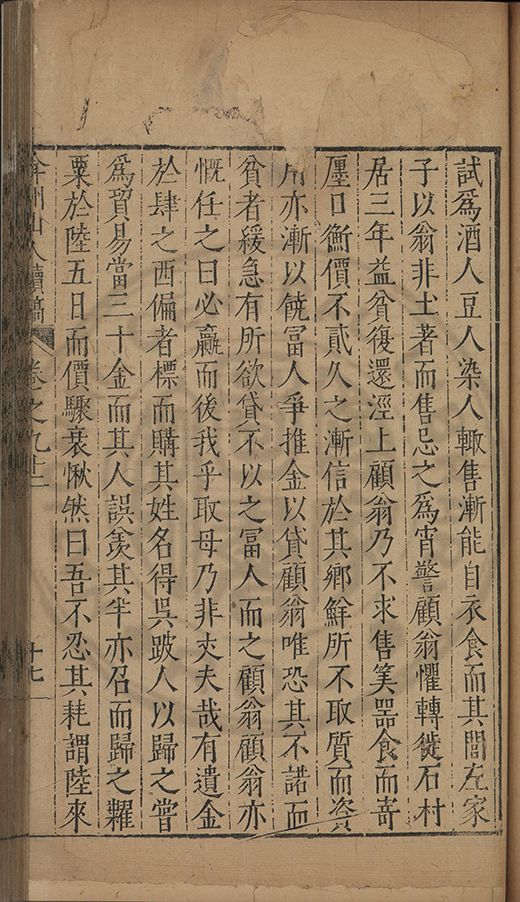 試爲酒人豆人染人輙售漸能自衣食而其閭左家
子以翁非土著而售忌之爲宵警顧翁懼轉徙石村
居三年益貧復還涇上顧翁乃不求售筭器食而寄
廛口衡價不貳久之漸信於其鄉鮮所不取質而資
用亦漸以饒富人爭推金以貸顧翁唯恐其不諾而
貧者緩急有所欲貸不以之冨人而之顧翁顧翁亦
慨任之曰必贏而後我乎取毋乃非夾夫哉有遺金
於肆之西偏者標而購其姓名得吳跛人以歸之嘗
爲貿易當三十金而其人誤羨其半亦召而歸之糴
粟於陸五日而價驟衰愀然曰吾不忍其耗謂陸來
弇州山人續稿 卷之九十二 十七